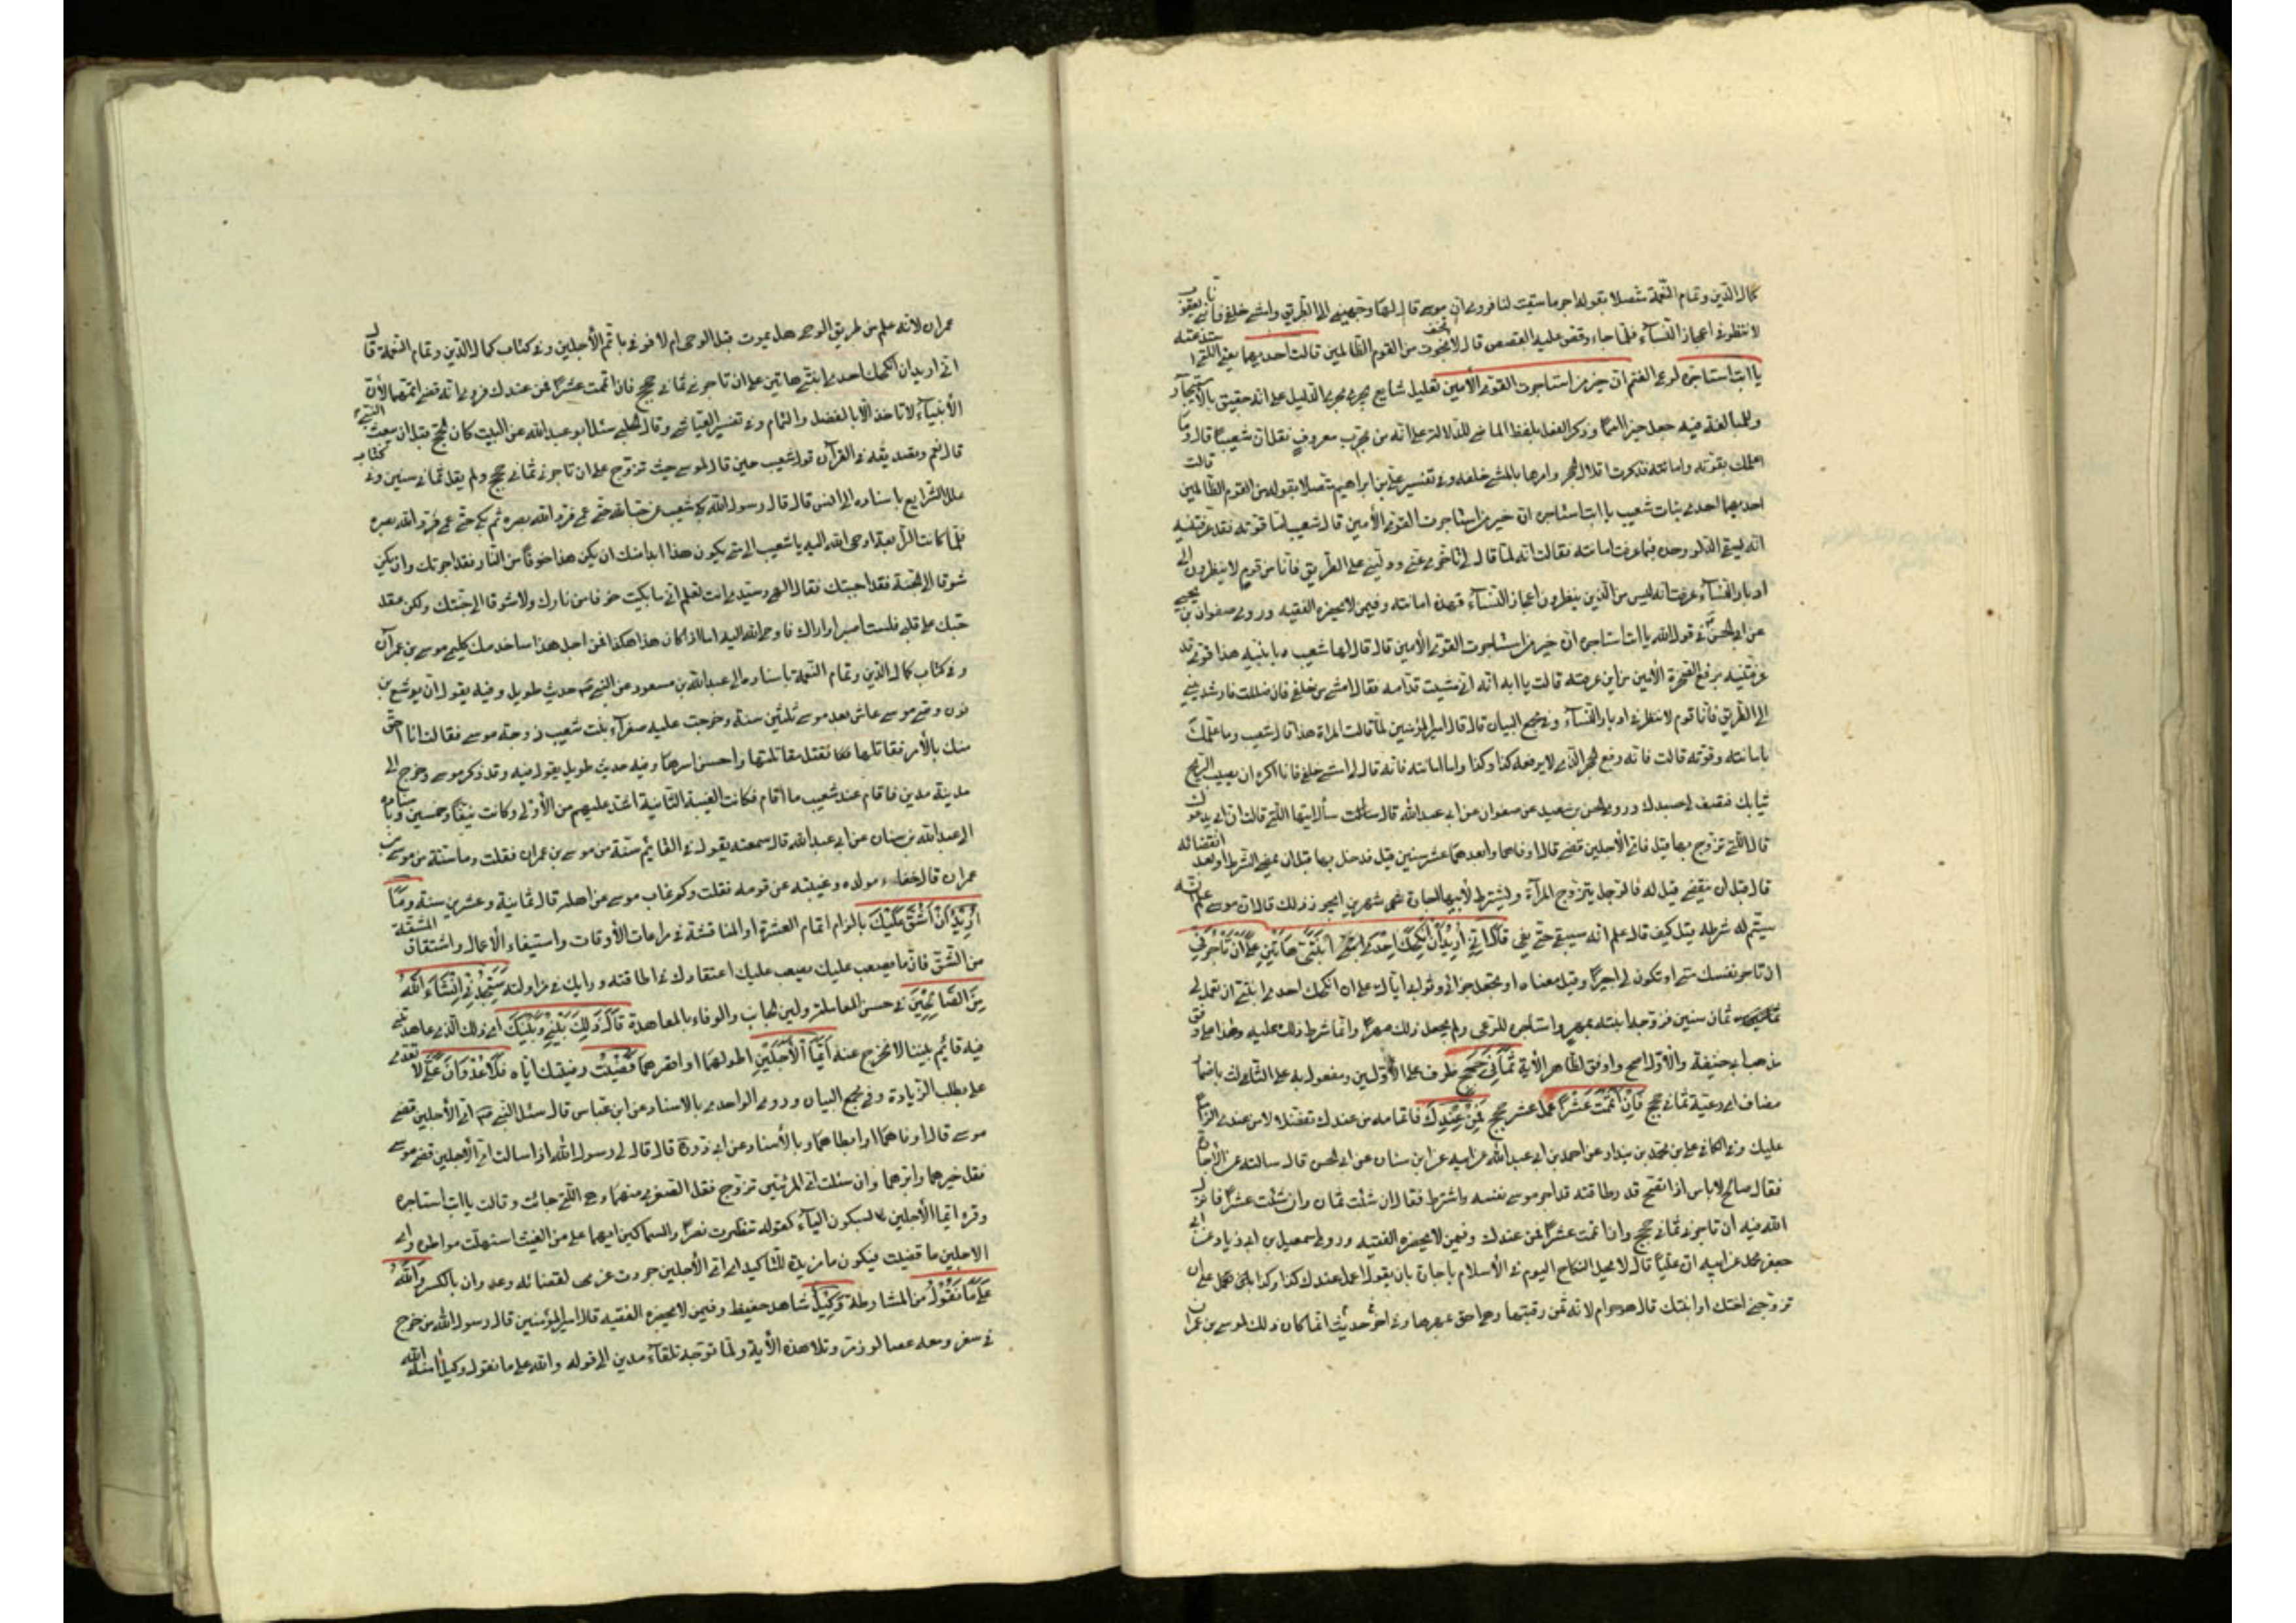 كمال الدين وتمام النعمة متصلا بقوله اجر ما سقيت لنا فروي ان موسى قال لها وجهيني الى الطريق وامشي خلفي فانا بنى يعقوب
لا ننظر في اعجاز النساء فلما جاءه وقص عليه القصص قال لا تخف نجوت من القوم الظالمين قالت احديهما يعني التي استدعته
يا ابت استاجره لرعي الغنم ان خير من استاجرت القوي الأمين تعليل شايع يجري مجرى الدليل على انه حقيق بالاستيجار
وللمبالغة فيه جعل خير اسما وذكر الفعل بلفظ الماضي للدلالة على انه من مجرب معروف نقل ان شعيبا قال وما
اعلمك بقوته وامانته فذكرت اقلال الحجر وامرها بالمشي خلفه وفي تفسير علي بن ابراهيم متصلا بقوله من القوم الظالمين قالت
احديهما احدى بنات شعيب يا ابت استاجره ان خير من استاجرت القوي الأمين قال شعيب اما قوته فقد عرفتنيه
انه يستقي الدلو وحده فبما عرفت امانته فقالت انه لما قال لي تاخري عني ودليني على الطريق فانا من قوم لا ينظرون الى
ادبار النساء عرفت انه ليس من الذين ينظرون اعجاز النساء فهذه امانته وفيمن لا يحضره الفقيه وروى صفوان بن يحيى
عن ابي الحسن في قول الله يا ابت استاجره ان خير من استاجرت القوي الأمين قال قال لها شعيب يا بنيه هذا قوي قد
عرفتيه برفع الصخرة الأمين من اين عرفته قالت يا ابه اني مشيت قدامه فقال امشي من خلفي فان ضللت فارشديني
الى الطريق فانا قوم لا ننظر في ادبار النساء وفي مجمع البيان قال قال امير المؤمنين لما قالت المراة هذا قال شعيب وما علمك
بامانته وقوته قالت فانه رفع الحجر الذي لا يرفعه كذا وكذا واما امانته فانه قال لي امشي خلفي فانا اكره ان يصيب الريح
ثيابك فتصف لي جسدك وروى الحسن بن سعيد عن صفوان عن ابي عبد الله قال سئل ايتهما التي قالت ان ابي يدعوك
قال التي تزوج بها قيل فاي الأجلين قضى قال اوفاهما وابعدهما عشر سنين قيل فدخل بها قبل ان يمضي الشرط او بعد انقضائه
قال قبل ان ينقضي قيل له فالرجل يتزوج المرأة ويشترط لأبيها اجارة شهرين ايجوز ذلك قال ان موسى علم انه
سيتم له شرطه قيل كيف قال علم انه سيبقى حتى يفي قال اني اريد ان انكحك احدى ابنتي هاتين على ان تأجرني
ان تاجر نفسك مني او تكون لي اجيرا وقيل معناه او تجعل جزائي وثوابي اياك على ان انكحك احدى ابنتي ان تعمل لي
ثمان سنين فزوجه ابنته بمهر واستاجره للرعي ولم يجعل ذلك مهرا وانما شرط ذلك عليه وهذا على وفق
مذهب ابي حنيفة والأول اصح واوفق لظاهر الآية ثماني حجج ظرف على الأولين ومفعول به على الثالث باضمار
مضاف اي رعية ثماني حجج فان اتممت عشرا عمل عشر حجج فمن عندك فاتمامه من عندك تفضلا لا من عندي الزاما
عليك وفي الكافي علي بن محمد بن بندار عن احمد بن ابي عبد الله عن ابيه عن ابن سنان عن ابي الحسن قال سالته عن الاجارة
فقال صالح لا باس اذا نصح قدر طاقته قد اجر موسى نفسه واشترط فقال ان شئت ثمان وان شئت عشرا فانزل
الله فيه ان تاجرني ثماني حجج وان اتممت عشرا فمن عندك وفيمن لا يحضره الفقيه وروى اسمعيل بن ابي زياد عن
جعفر بن محمد عن ابيه ان عليا قال لا يحل النكاح اليوم في الأسلام باجارة بان يقول اعمل عندك كذا وكذا على ان
تزوجني اختك او ابنتك قال هو حرام لانه ثمن رقبتها وهي احق بمهرها وفي اخر حديث انما كان ذلك لموسى بن عمران
عمران لانه علم من طريق الوحي هل يموت قبل الوحي ام لا فوفى باتم الأجلين وفي كتاب كمال الدين وتمام النعمة قال
اني اريد ان انكحك احدى ابنتي هاتين على ان تاجرني ثماني حجج فان اتممت عشرا فمن عندك فروي انه قضى اتمهما لأن
الأنبياء لا تاخذ الا بالفضل والتمام وفي تفسير العياشي وقال الحلبي سئل ابو عبد الله عن البيت كان يحج قبل ان يبعث النبي
قال نعم وتصديقه في القرآن قول شعيب حين قال لموسى حيث تزوج على ان تاجرني ثماني حجج ولم يقل ثماني سنين وفي كتاب
علل الشرايع باسناده الى انس قال قال رسول الله بكى شعيب من حب الله حتى عمي فرد الله بصره ثم بكى حتى عمي فرد الله بصره
فلما كانت الرابعة اوحى الله اليه يا شعيب الى متى يكون هذا ابدا منك ان يكن هذا خوفا من النار فقد اجرتك وان يكن
شوقا الى الجنة فقد ابحتك فقال الهي وسيدي انت تعلم اني ما بكيت خوفا من نارك ولا شوقا الى جنتك ولكن عقد
حبك على قلبي فلست اصبر او اراك فاوحى الله اليه اما اذا كان هذا هكذا فمن اجل هذا ساخدمك كليمي موسى بن عمران
وفي كتاب كمال الدين وتمام النعمة باسناده الى عبد الله بن مسعود عن النبي حديث طويل وفيه يقول ان يوشع بن
نون وصي موسى عاش بعد موسى ثلثين سنة وخرجت عليه صفراء بنت شعيب زوجة موسى فقالت انا احق
منك بالأمر فقاتلها فقتل مقاتلتها واحسن اسرها وفيه حديث طويل يقول فيه وقد ذكر موسى وخرج الى
مدينة مدين فاقام عند شعيب ما اقام فكانت الغيبة الثانية اشد عليهم من الأولى وكانت نيفا وخمسين وباسناده
الى عبد الله بن سنان عن ابي عبد الله قال سمعته يقول في القايم سنة من موسى بن عمران فقلت وما سنة من موسى بن
عمران قال خفاء مولده وغيبته عن قومه فقلت وكم غاب موسى عن اهله قال ثمانية وعشرين سنة وما
اريد ان اشق عليك بالزام اتمام العشرة او المناقشة في مراعات الأوقات واستيفاء الأعمال واشتقاق المشقة
من الشق فان ما يصعب عليك يصعب عليك اعتقادك في اطاقته ورايك في مزاولته ستجدني انشاء الله
من الصالحين في حسن المعاملة ولين الجانب والوفاء بالمعاهدة قال ذلك بيني وبينك اي ذلك الذي عاهدتني
فيه قائم بيننا لا نخرج عنه ايما الأجلين اطولهما او اقصرهما قضيت وفيتك اياه فلا عدوان علي لا تعتدي
علي بطلب الزيادة وفي مجمع البيان وروى الواحدي بالاسناد عن ابن عباس قال سئل النبي اي الأجلين قضى
موسى قال اوفاهما وابطاهما وبالأسناد عن ابي ذر قال قال لي رسول الله اذا سالت اي الأجلين قضى موسى
فقل خيرهما وابرهما وان سئلت اي المرئتين تزوج فقل الصغرى منهما وهي التي جائت وقالت يا ابت استاجره
وقرء ايما الأجلين بسكون الياء كقوله تنظرت نصرا والسماكين ايهما علي من الغيث استهلت مواطره واي
الاجلين ما قضيت فيكون ما مزيدة للتاكيد اي اي الأجلين جردت عزمي لقضائه وعدوان بالكسر والله
على ما نقول من المشارطة وكيل شاهد حفيظ وفيمن لا يحضره الفقيه قال امير المؤمنين قال رسول الله من خرج
في سفر ومعه عصا لوز مر وتلا هذه الأية ولما توجه تلقاء مدين الى قوله والله على ما نقول وكيل امنه الله